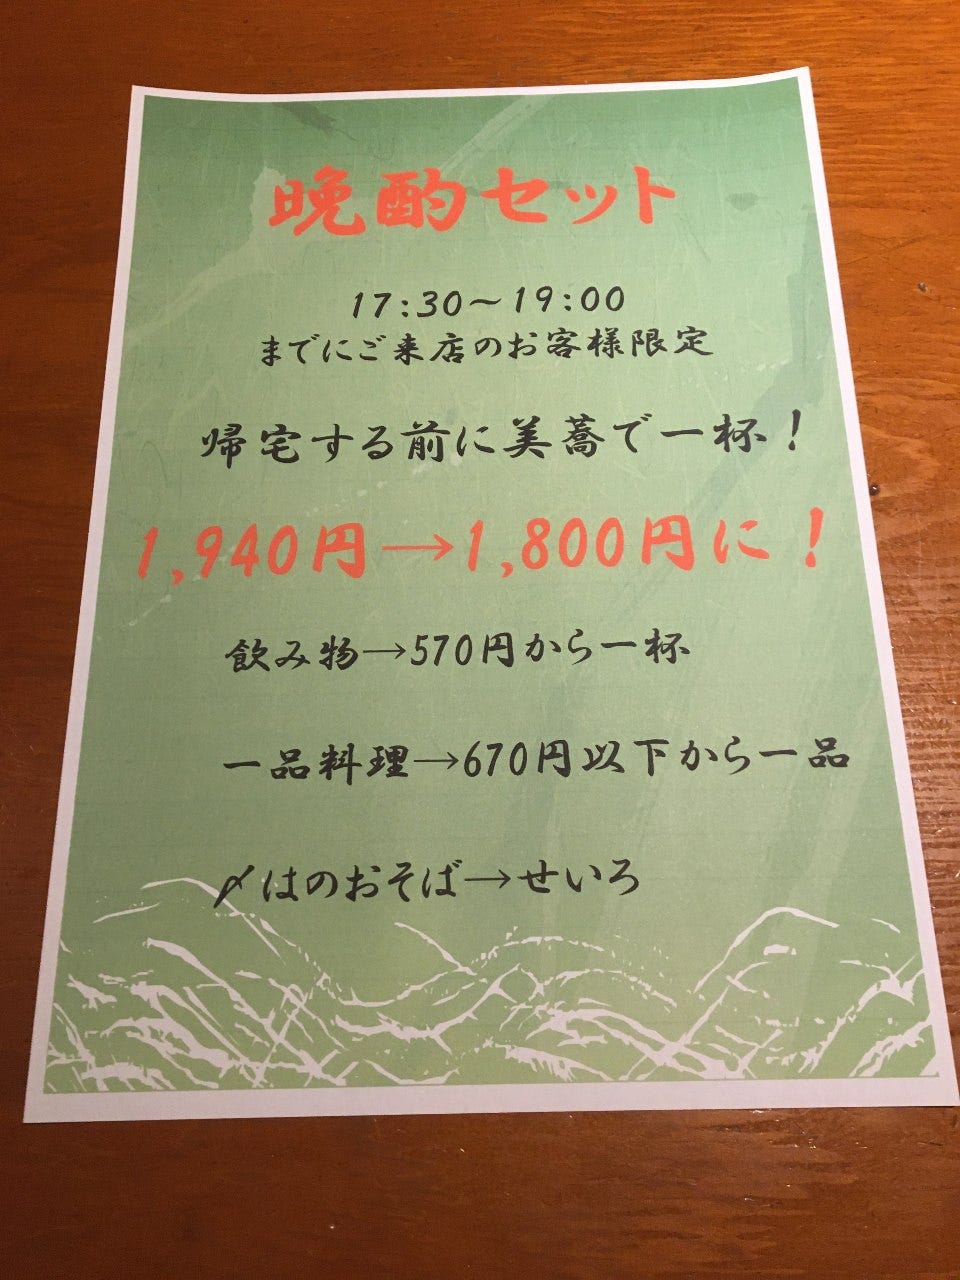 晩酌セット
17:30～19:00
までにご来店のお客様限定
帰宅する前に美蕎で一杯！
1,940円→1,800円に！
飲み物→570円から一杯
一品料理→670円以下から一品
〆はのおそば→せいろ